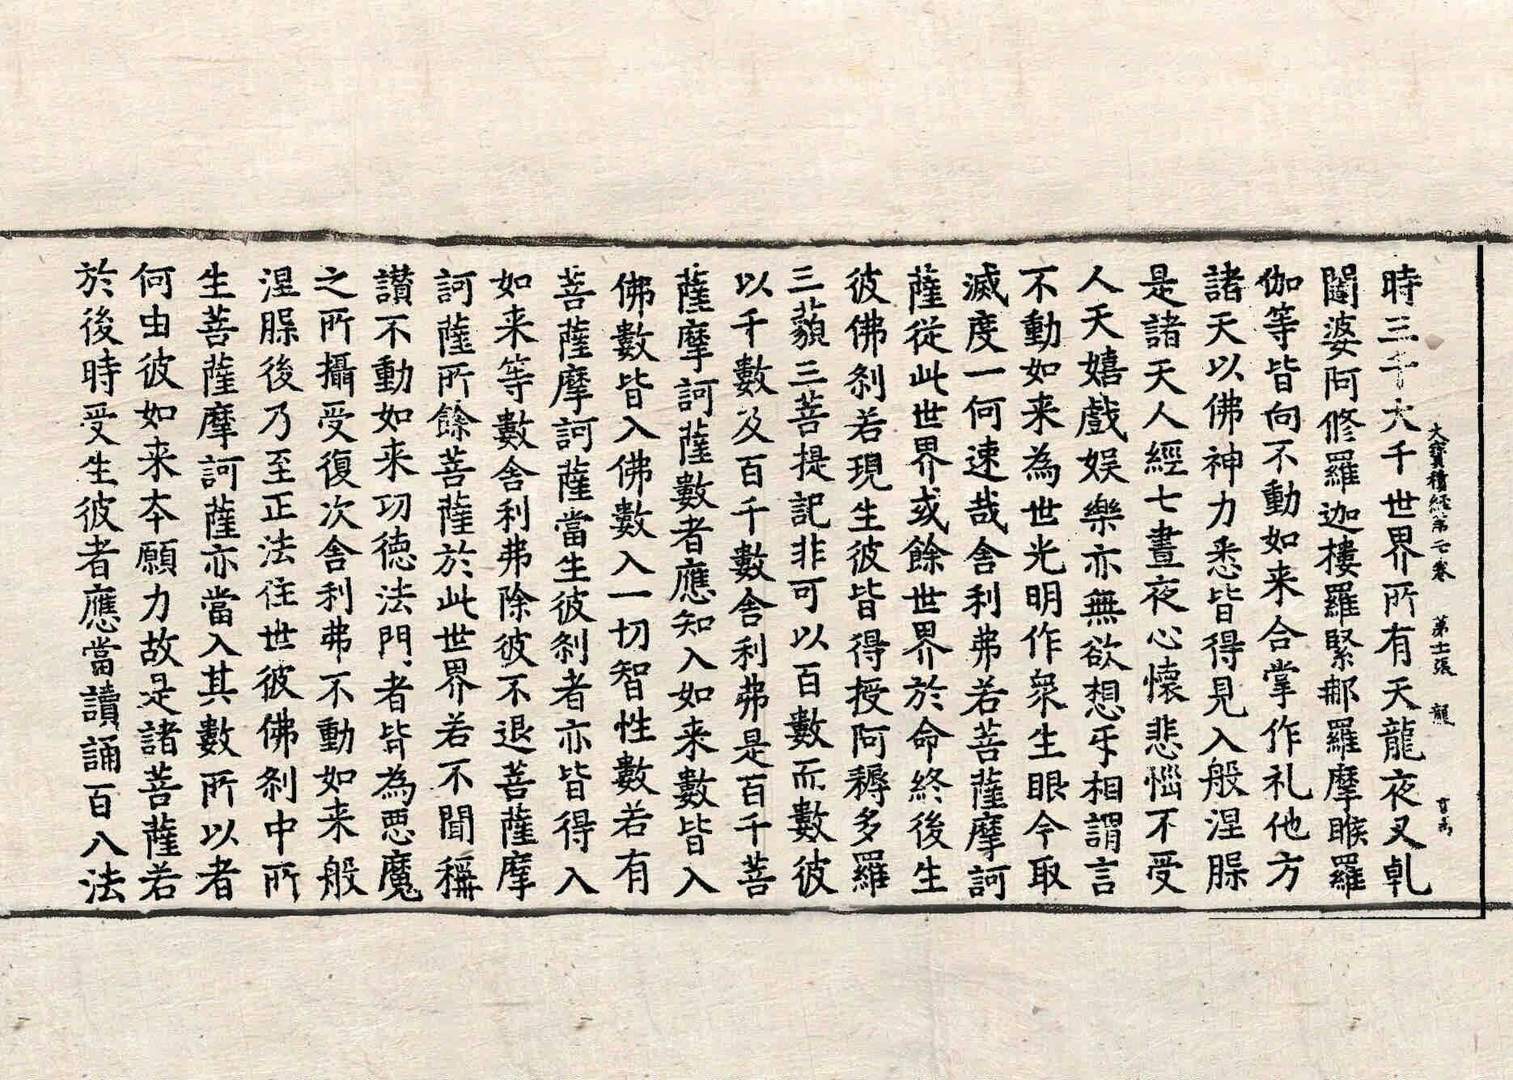 時三千大千世界所有天龍夜叉乹
闥婆阿修羅迦樓羅緊那羅摩睺羅
伽等皆向不動如来合掌作礼他方
諸天以佛神力悉皆得見入般涅𦢊
是諸天人經七晝夜心懷悲惱不受
人天嬉戲娯樂亦無欲想㸦相謂言
不動如来為世光明作衆生眼今取
滅度一何速哉舍利弗若菩薩摩訶
薩從此世界或餘世界於命終後生
彼佛刹若現生彼皆得授阿耨多羅
三藐三菩提記非可以百數而數彼
以千數及百千數舍利弗是百千菩
薩摩訶薩數者應知入如来數皆入
佛數皆入佛數入一切智性數若有
菩薩摩訶薩當生彼刹者亦皆得入
如来等數舍利弗除彼不退菩薩摩
訶薩所餘菩薩於此世界若不聞稱
讃不動如来功徳法門者皆為惡魔
之所攝受復次舍利弗不動如来般
涅𦢊後乃至正法住世彼佛刹中所
生菩薩摩訶薩亦當入其數所以者
何由彼如来夲願力故是諸菩薩若
於後時受生彼者應當讀誦百八法
大寳積經第六卷 第十一張 龍